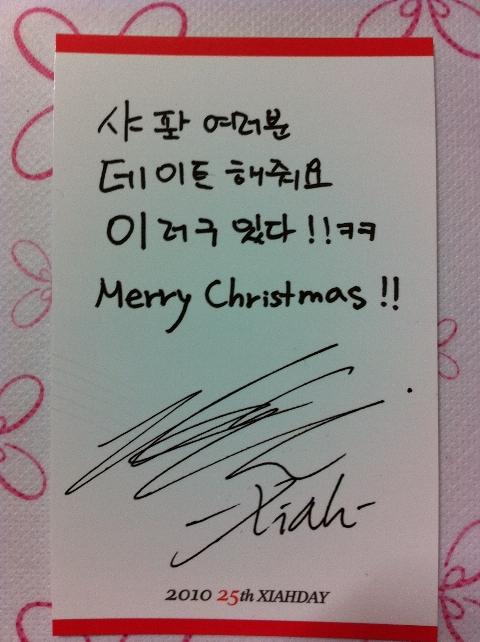 샤 퐈 여러분
데이트 해줘요
이러구 있다 !!ㅋㅋ
Merry Christmas !!
-Xiah-
2010 25th XIAHDAY